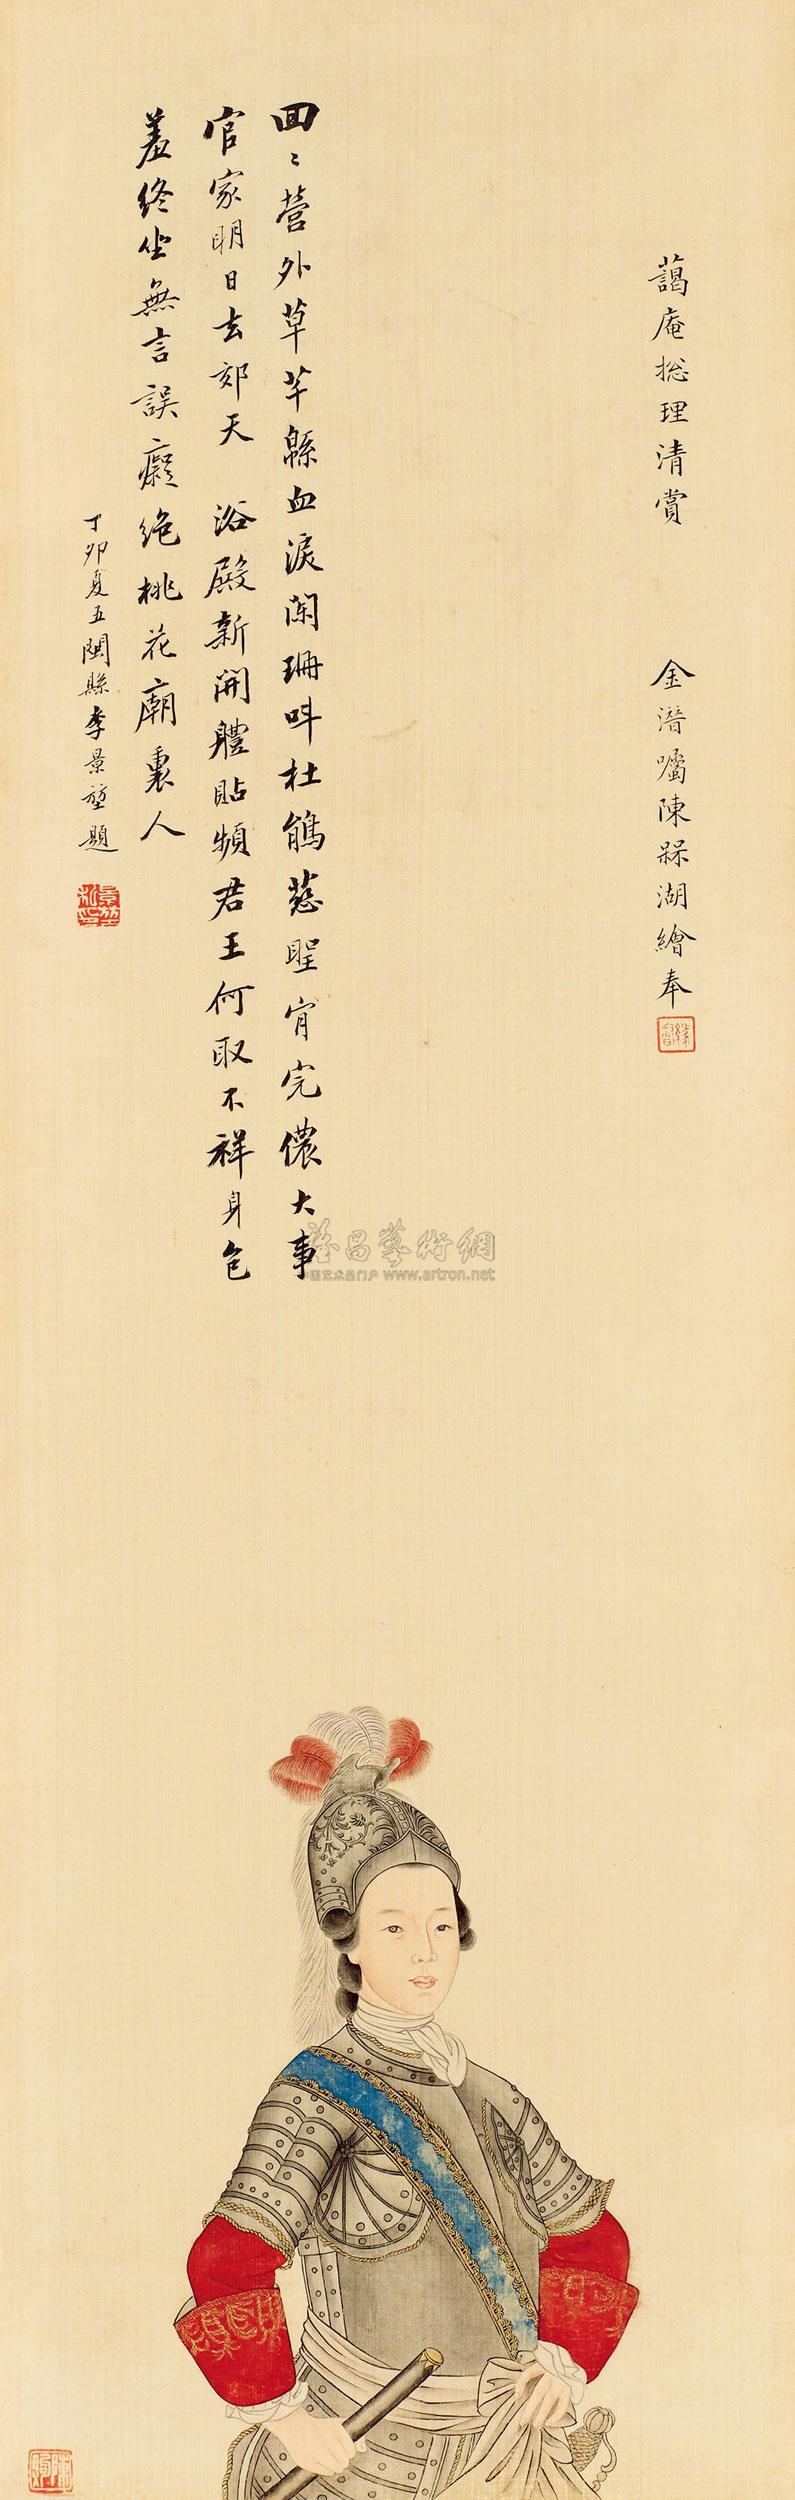 藹庵総理清賞
金潛囑陳槑湖繪奉
回〻營外草芊緜血淚闌珊呌杜鵑慈聖宵完儂大事
官家明日去郊天 浴殿新開體貼頻君王何取不祥身包
羞終坐無言誤癡絶桃花廟裏人
丁卯夏五閩縣李景堃題
雅昌藝術網
中国艺术品门户 www.artron.net